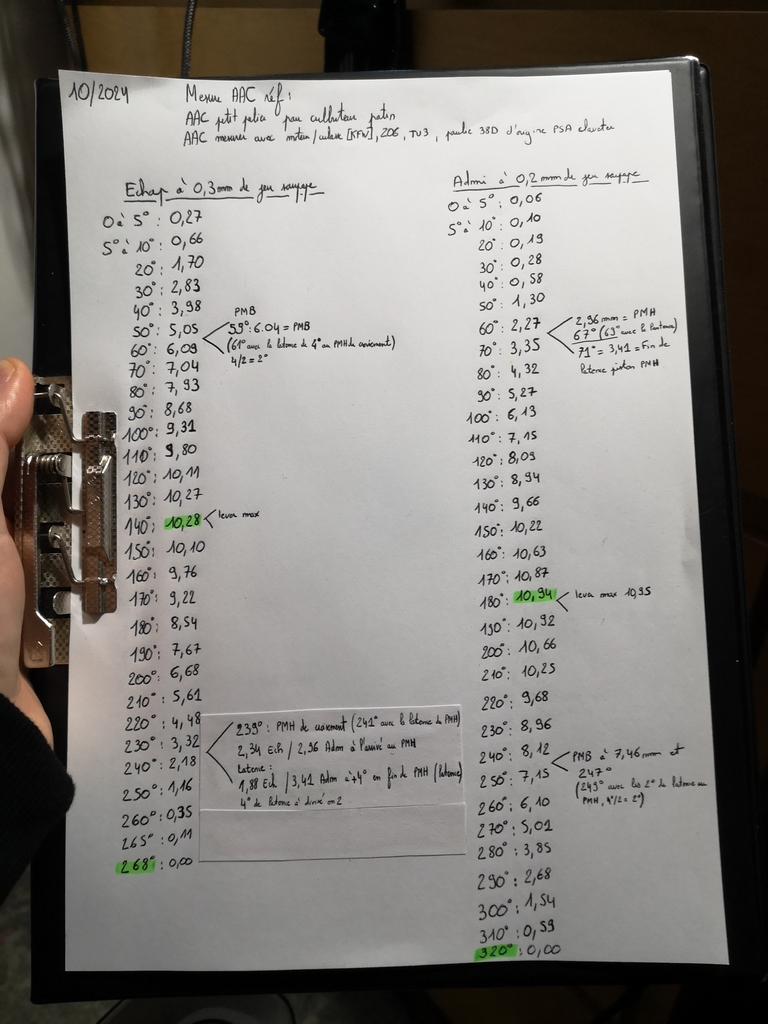 10/2024
Mesure AAC réf :
AAC petit patin pour culbuteur patin
AAC mesurer avec moteur/culasse [KFW], 206, TU3, poulie 38D d'origine PSA
Echap à 0,3mm de jeu soupape
0 à 5° : 0,27
5° à 10° : 0,66
20° : 1,70
30° : 2,83
40° : 3,98
50° : 5,05
60° : 6,09
70° : 7,04
80° : 7,93
90° : 8,68
100° : 9,31
110° : 9,80
120° : 10,11
130° : 10,27
140° : 10,28
150° : 10,10
160° : 9,76
170° : 9,22
180° : 8,54
190° : 7,67
200° : 6,68
210° : 5,61
220° : 4,48
230° : 3,32
240° : 2,18
250° : 1,16
260° : 0,35
265° : 0,11
268° : 0,00
PMB
59° : 6.04 = PMB
(61° avec la latence de 4° au PMH de croisement)
4/2 = 2°
lever max
239° : PMH de croisement (241° avec la latence du PMH)
2,34 Ech / 2,96 Adm à l'arrivé au PMH
Latence :
1,88 Ech / 3,41 Adm à +4° en fin de PMH (latence)
4° de latence à divisé en 2
Admi à 0,2mm de jeu soupape
0 à 5° : 0,06
5° à 10° : 0,10
20° : 0,19
30° : 0,28
40° : 0,58
50° : 1,30
60° : 2,27
70° : 3,35
80° : 4,32
90° : 5,27
100° : 6,13
110° : 7,15
120° : 8,09
130° : 8,94
140° : 9,66
150° : 10,22
160° : 10,63
170° : 10,87
180° : 10,94
190° : 10,92
200° : 10,66
210° : 10,25
220° : 9,68
230° : 8,96
240° : 8,12
250° : 7,15
260° : 6,10
270° : 5,01
280° : 3,85
290° : 2,68
300° : 1,54
310° : 0,59
320° : 0,00
2,96 mm = PMH
67° (69° avec la latence)
71° = 3,41 = Fin de
latence piston PMH
lever max 10,95
PMB à 7,46 mm et
247°
(249° avec les 2° de latence au
PMH, 4°/2 = 2°)